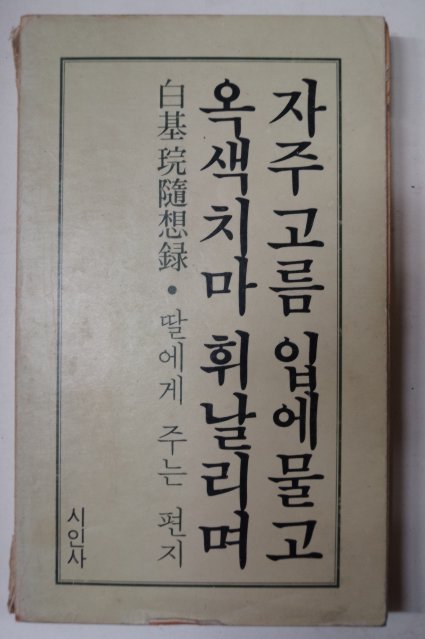 자주 고름 입에물고
옥색치마 휘날리며
白基琓隨想録 • 딸에게 주는 편지
시인사